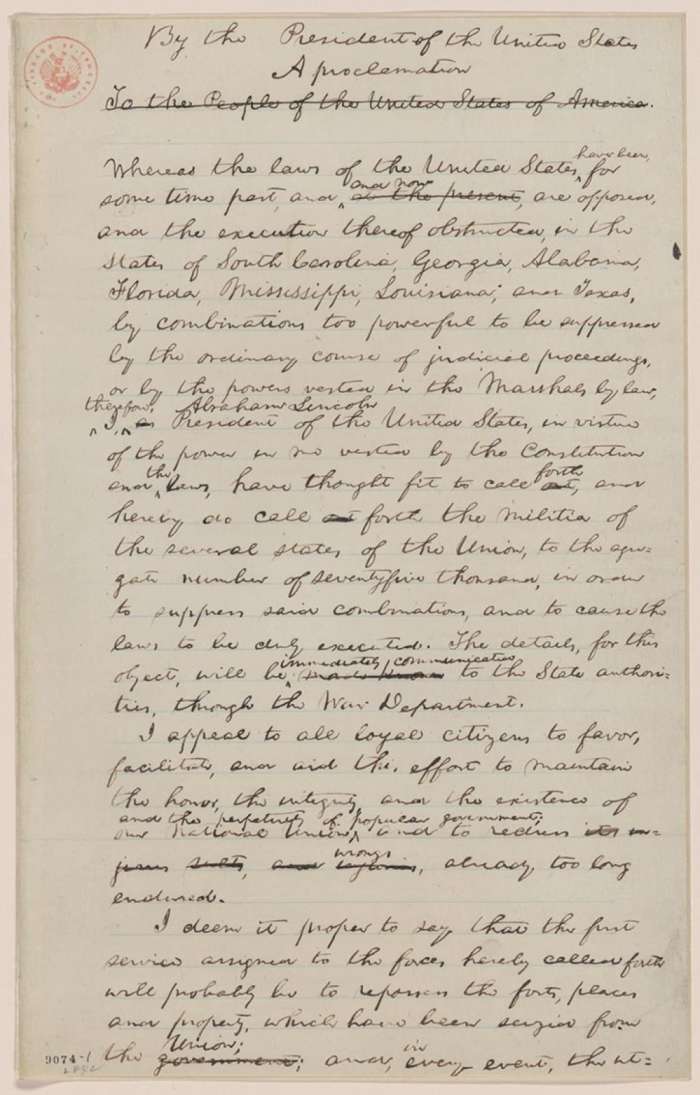 By the President of the United States
A proclamation
To the People of the United States of America.
Whereas the laws of the United States, have been, for
some time past, and and now at the present, are opposed,
and the execution thereof obstructed, in the
States of South Carolina, Georgia, Alabama,
Florida, Mississippi, Louisiana, and Texas,
by combinations too powerful to be suppressed
by the ordinary course of judicial proceedings,
or by the powers vested in the Marshals by law,
therefore, Abraham Lincoln
I, as President of the United States, in virtue
of the power in me vested by the Constitution
and the laws, have thought fit to call forth out, and
hereby do call out forth the Militia of
the several states of the Union, to the agre=
gate number of seventyfive thousand, in order
to suppress said combinations, and to cause the
laws to be duly executed. The details, for this
object, will be immediately communicated made known to the State authori=
ties, through the War Department.
I appeal to all loyal citizens to favor,
facilitate, and aid this effort to maintain
the honor, the integrity, and the existence of
and the perpetuity of popular government;
our National Union, and to redress its in=
wrongs
already too long
endured.
I deem it proper to say that the first
service assigned to the forces hereby called forth
will probably be to repossess the forts, places
and property, which have been seized from
the Union; government; and, in every event, the ut=
9074-1